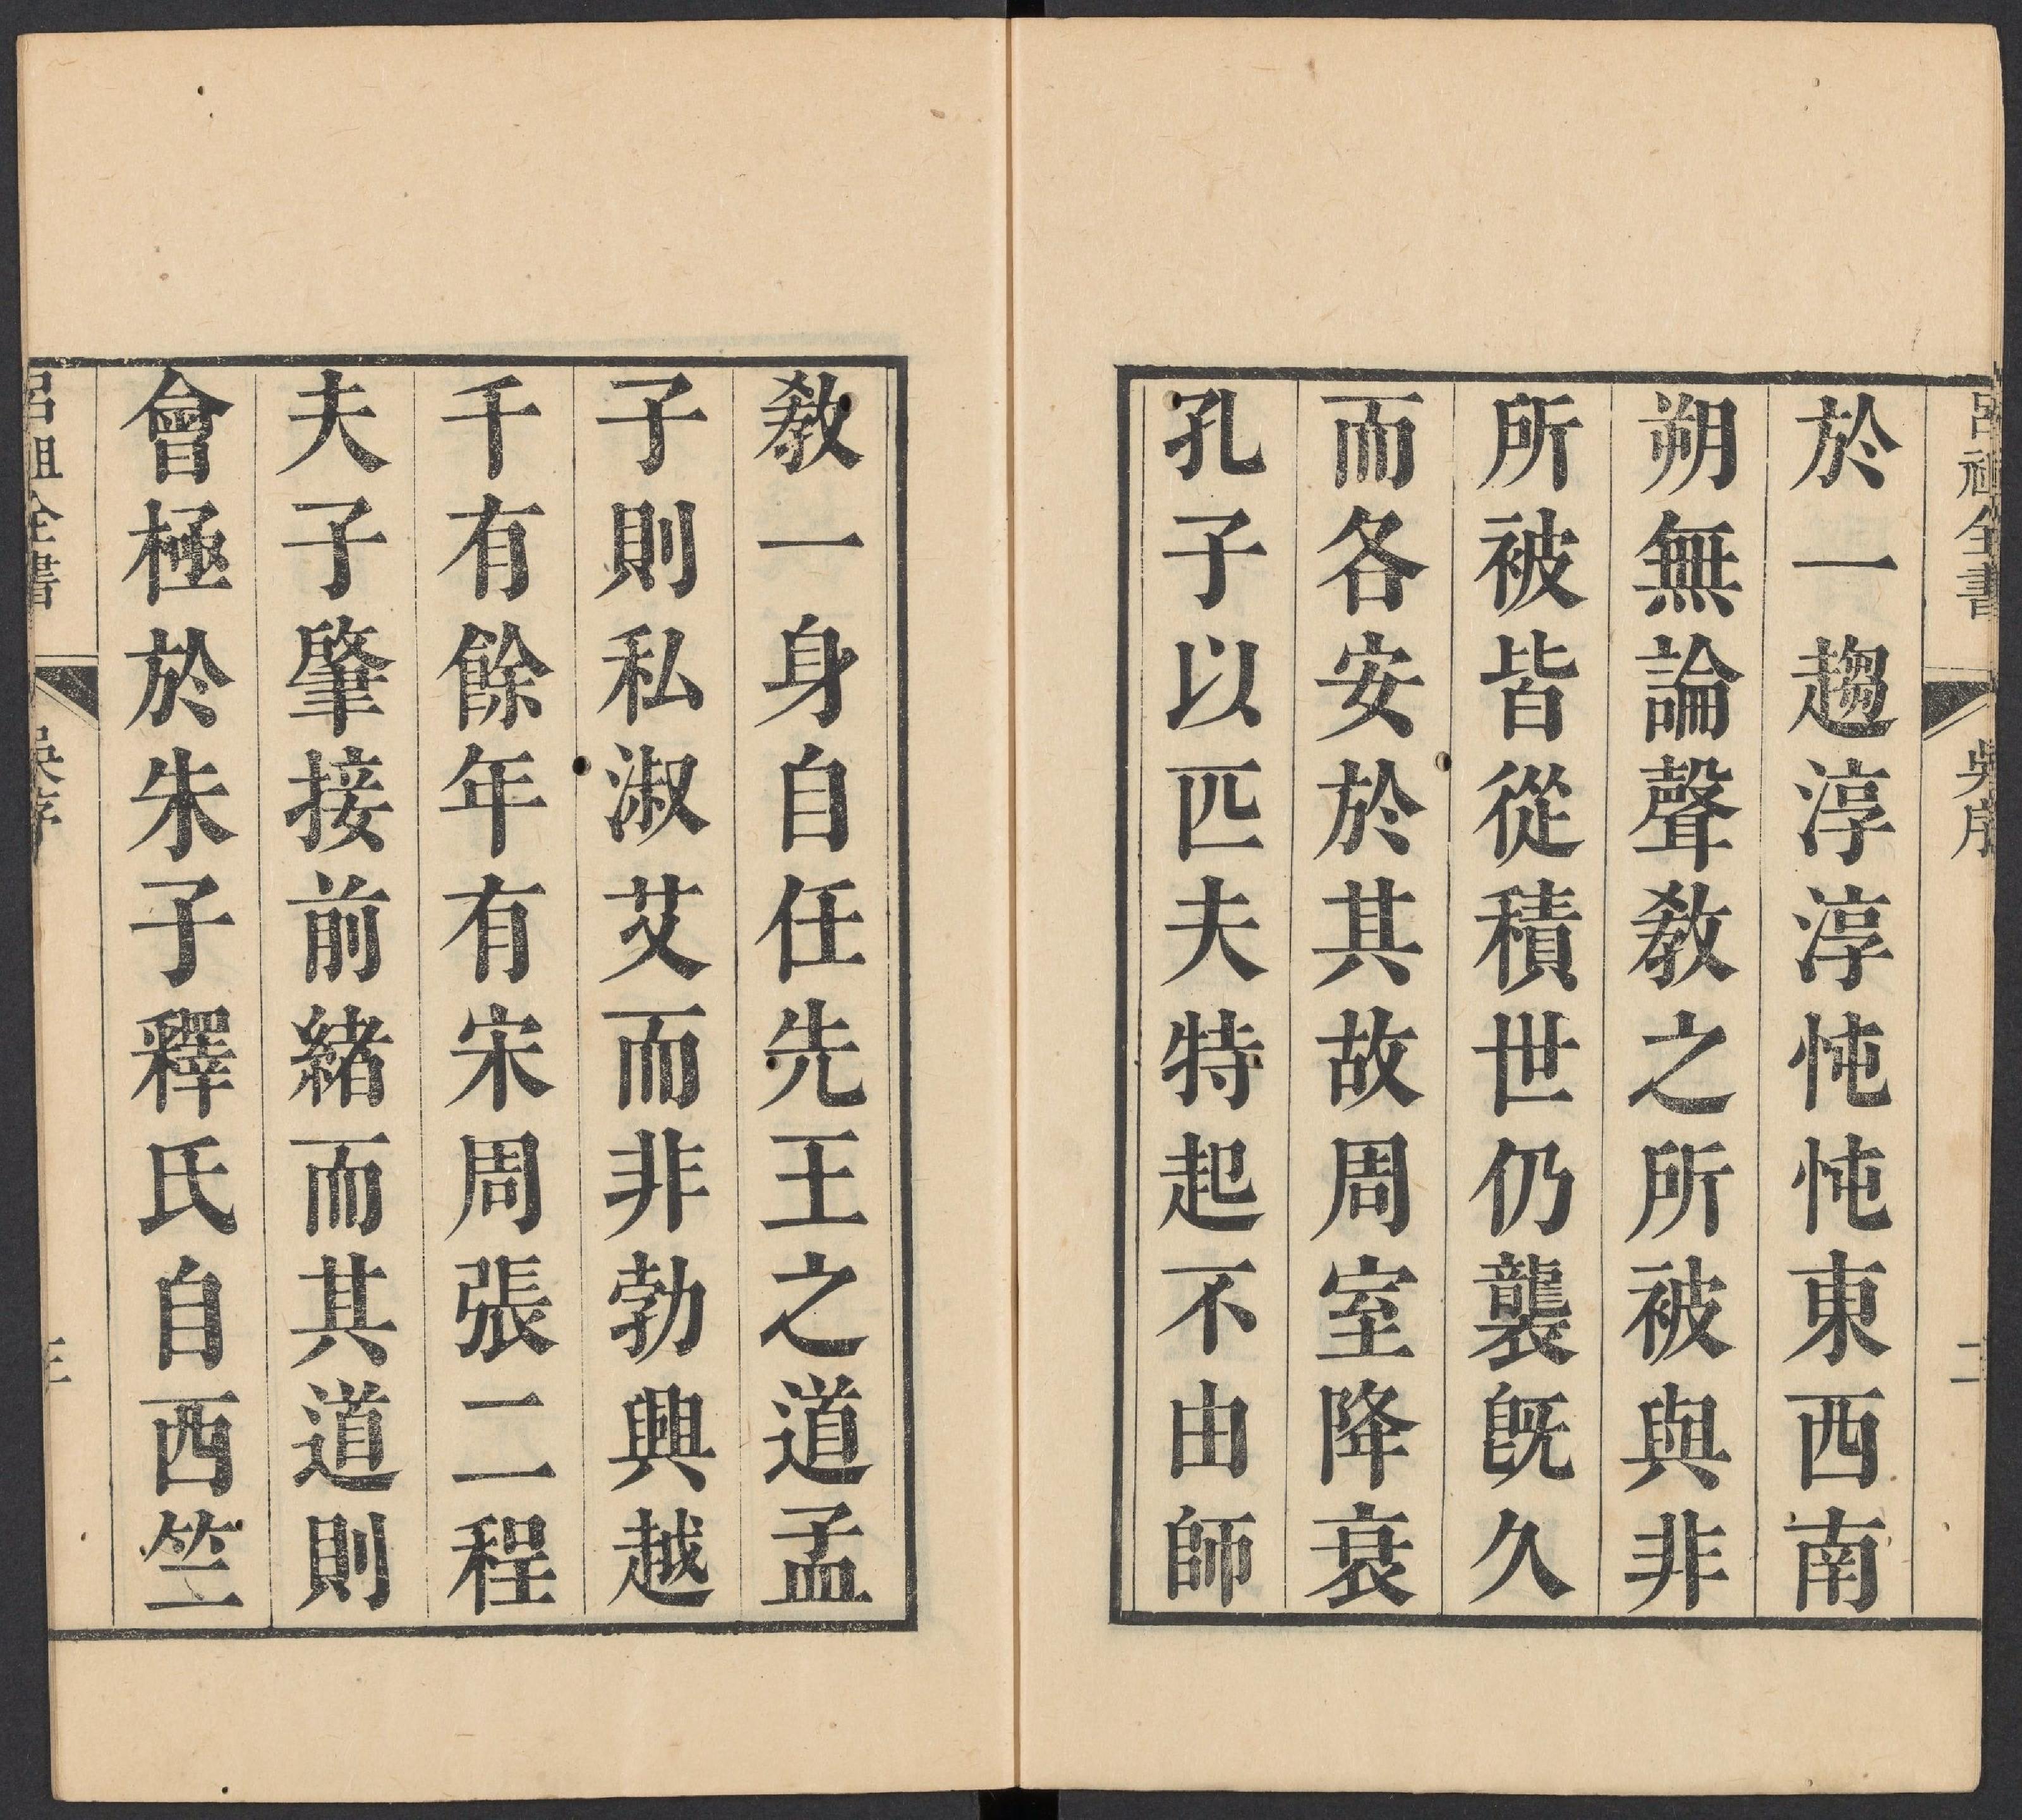 呂祖全書 吳序 二
於一趨淳淳忳忳東西南
朔無論聲敎之所被與非
所被皆從積世仍襲旣久
而各安於其故周室降衰
孔子以匹夫特起不由師
敎一身自任先王之道孟
子則私淑艾而非勃興越
千有餘年有宋周張二程
夫子肇接前緒而其道則
會極於朱子釋氏自西竺
呂祖全書 吳序 三